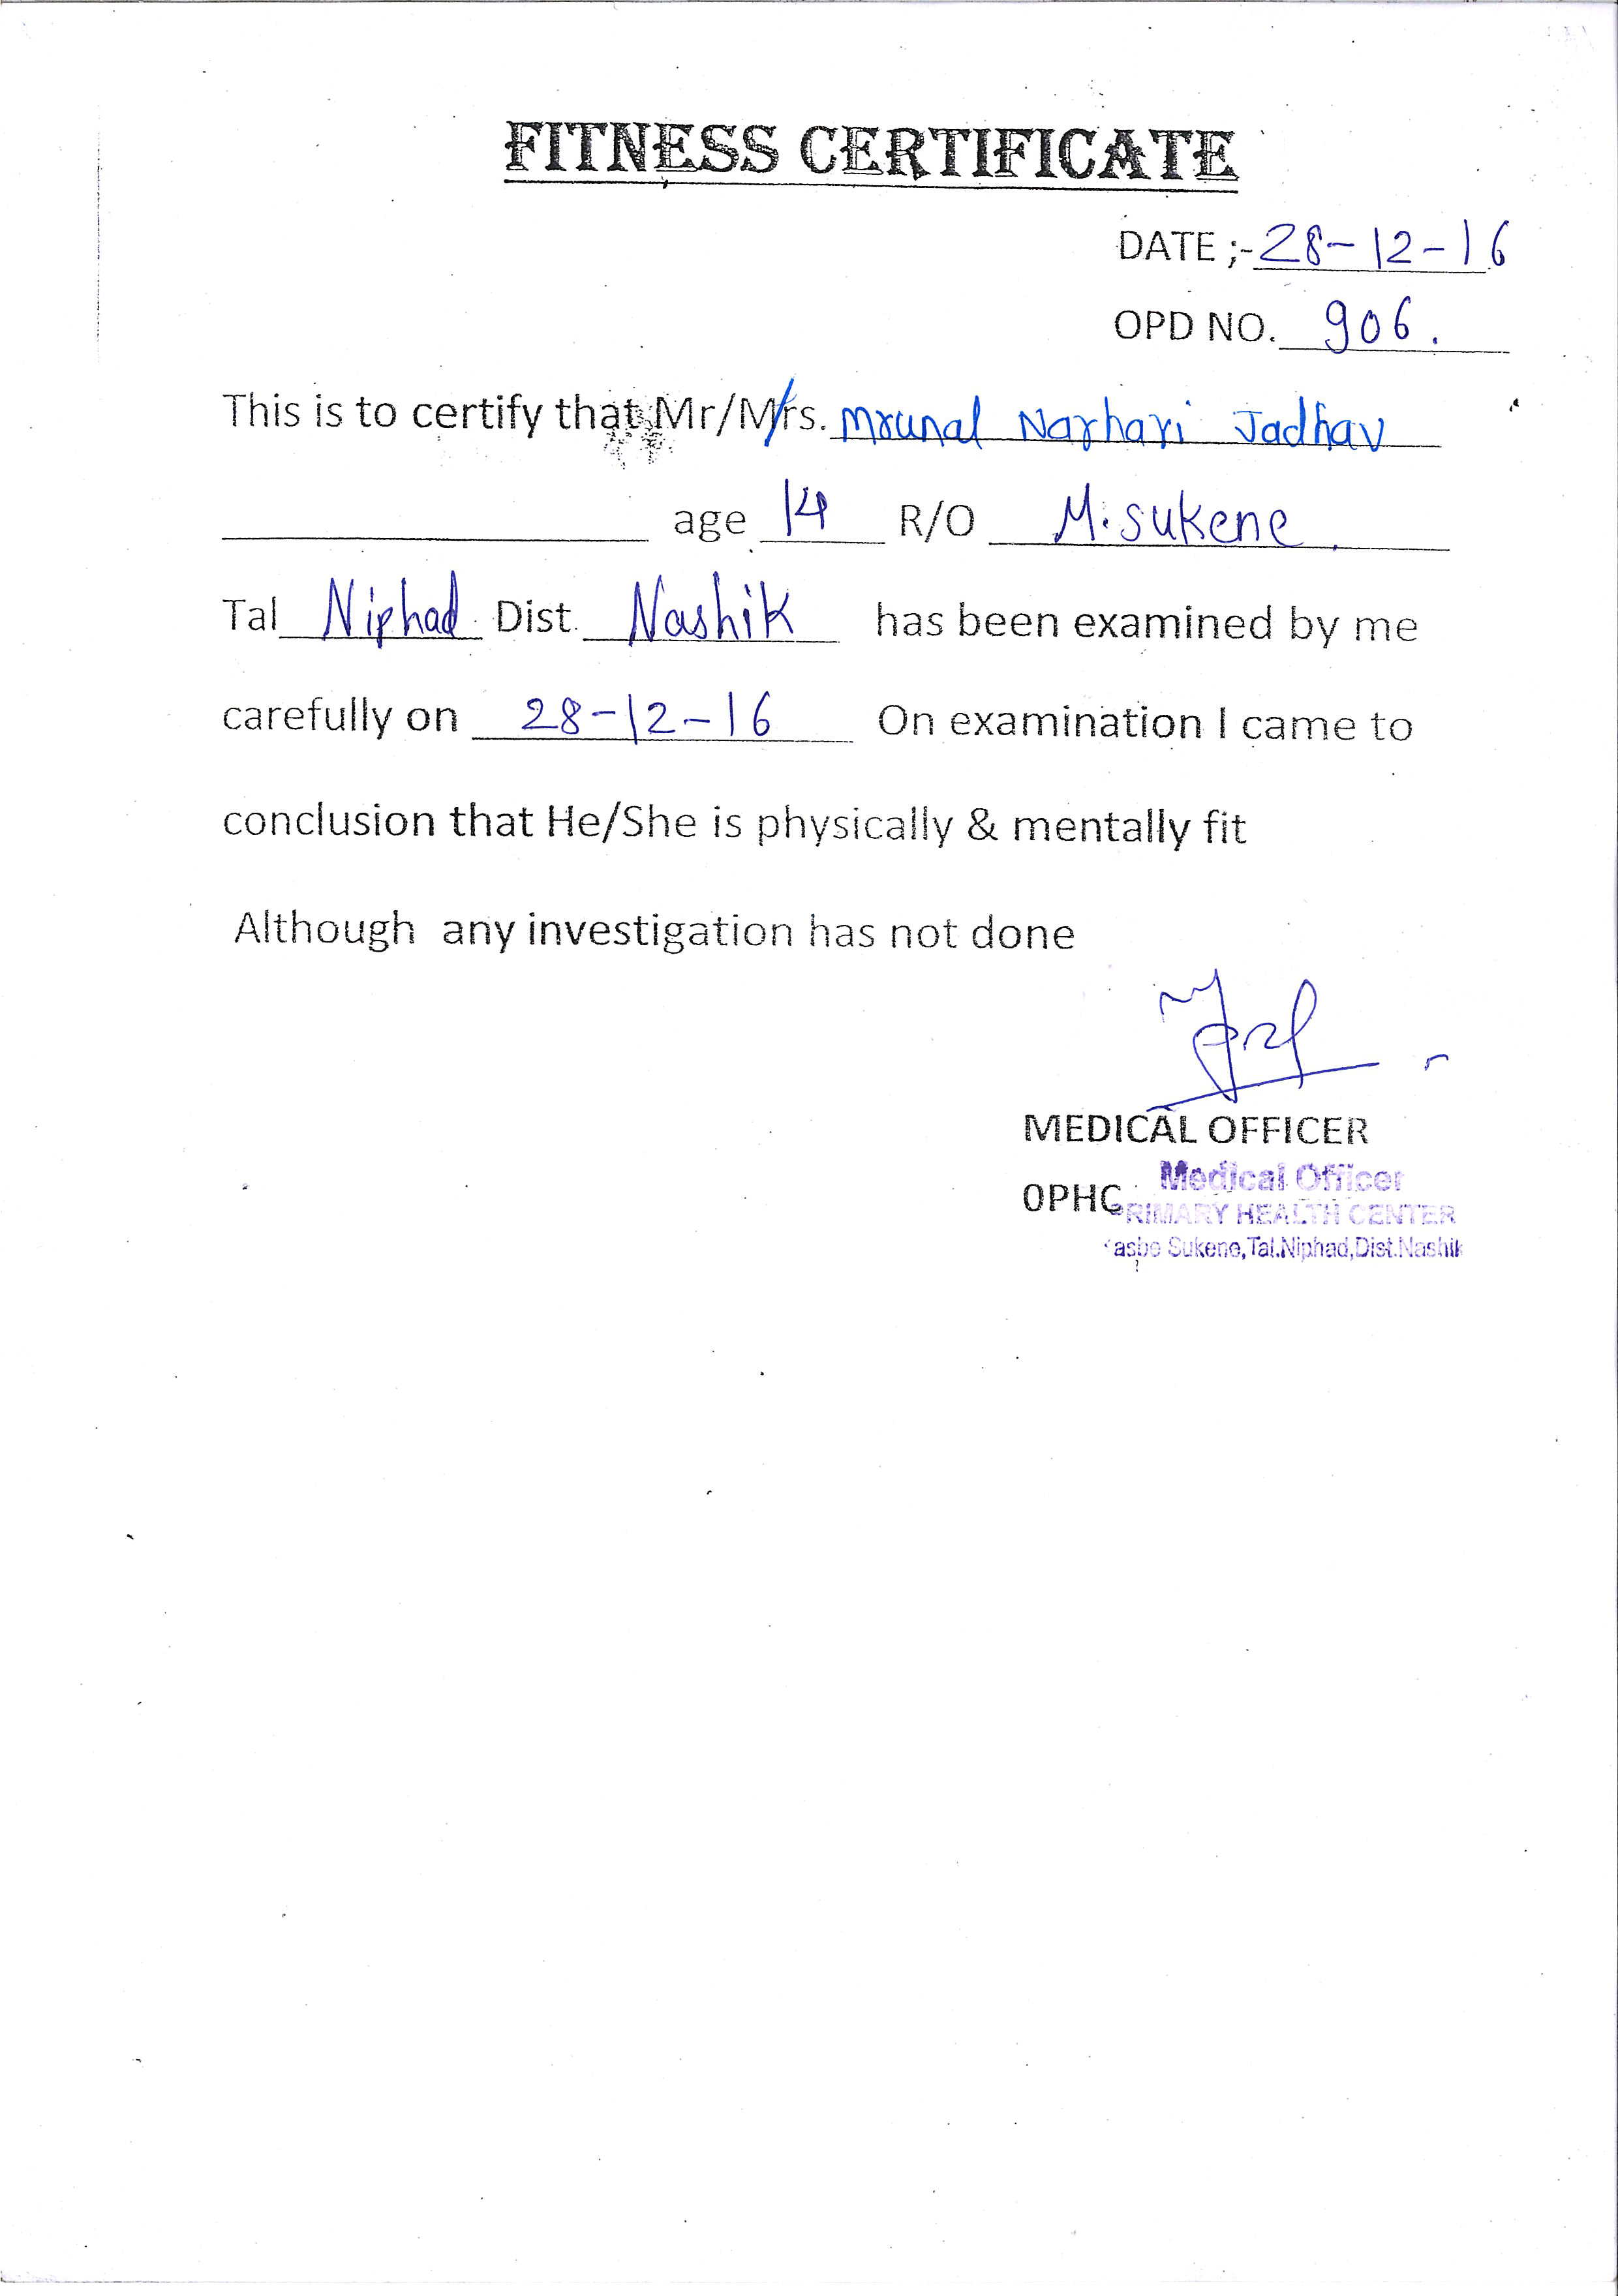 FITNESS CERTIFICATE
DATE ;- 28-12-16
OPD NO. 906.
This is to certify that Mr/Mrs. Mrunal Narhari Jadhav
age 14 R/O M.sukene
Tal Niphad Dist. Nashik has been examined by me
carefully on 28-12-16 On examination I came to
conclusion that He/She is physically & mentally fit
Although any investigation has not done
MEDICAL OFFICER
Medical Officer
0PHC
RIMARY HEALTH CENTER
asbe Sukene,Tal.Niphad,Dist.Nashik